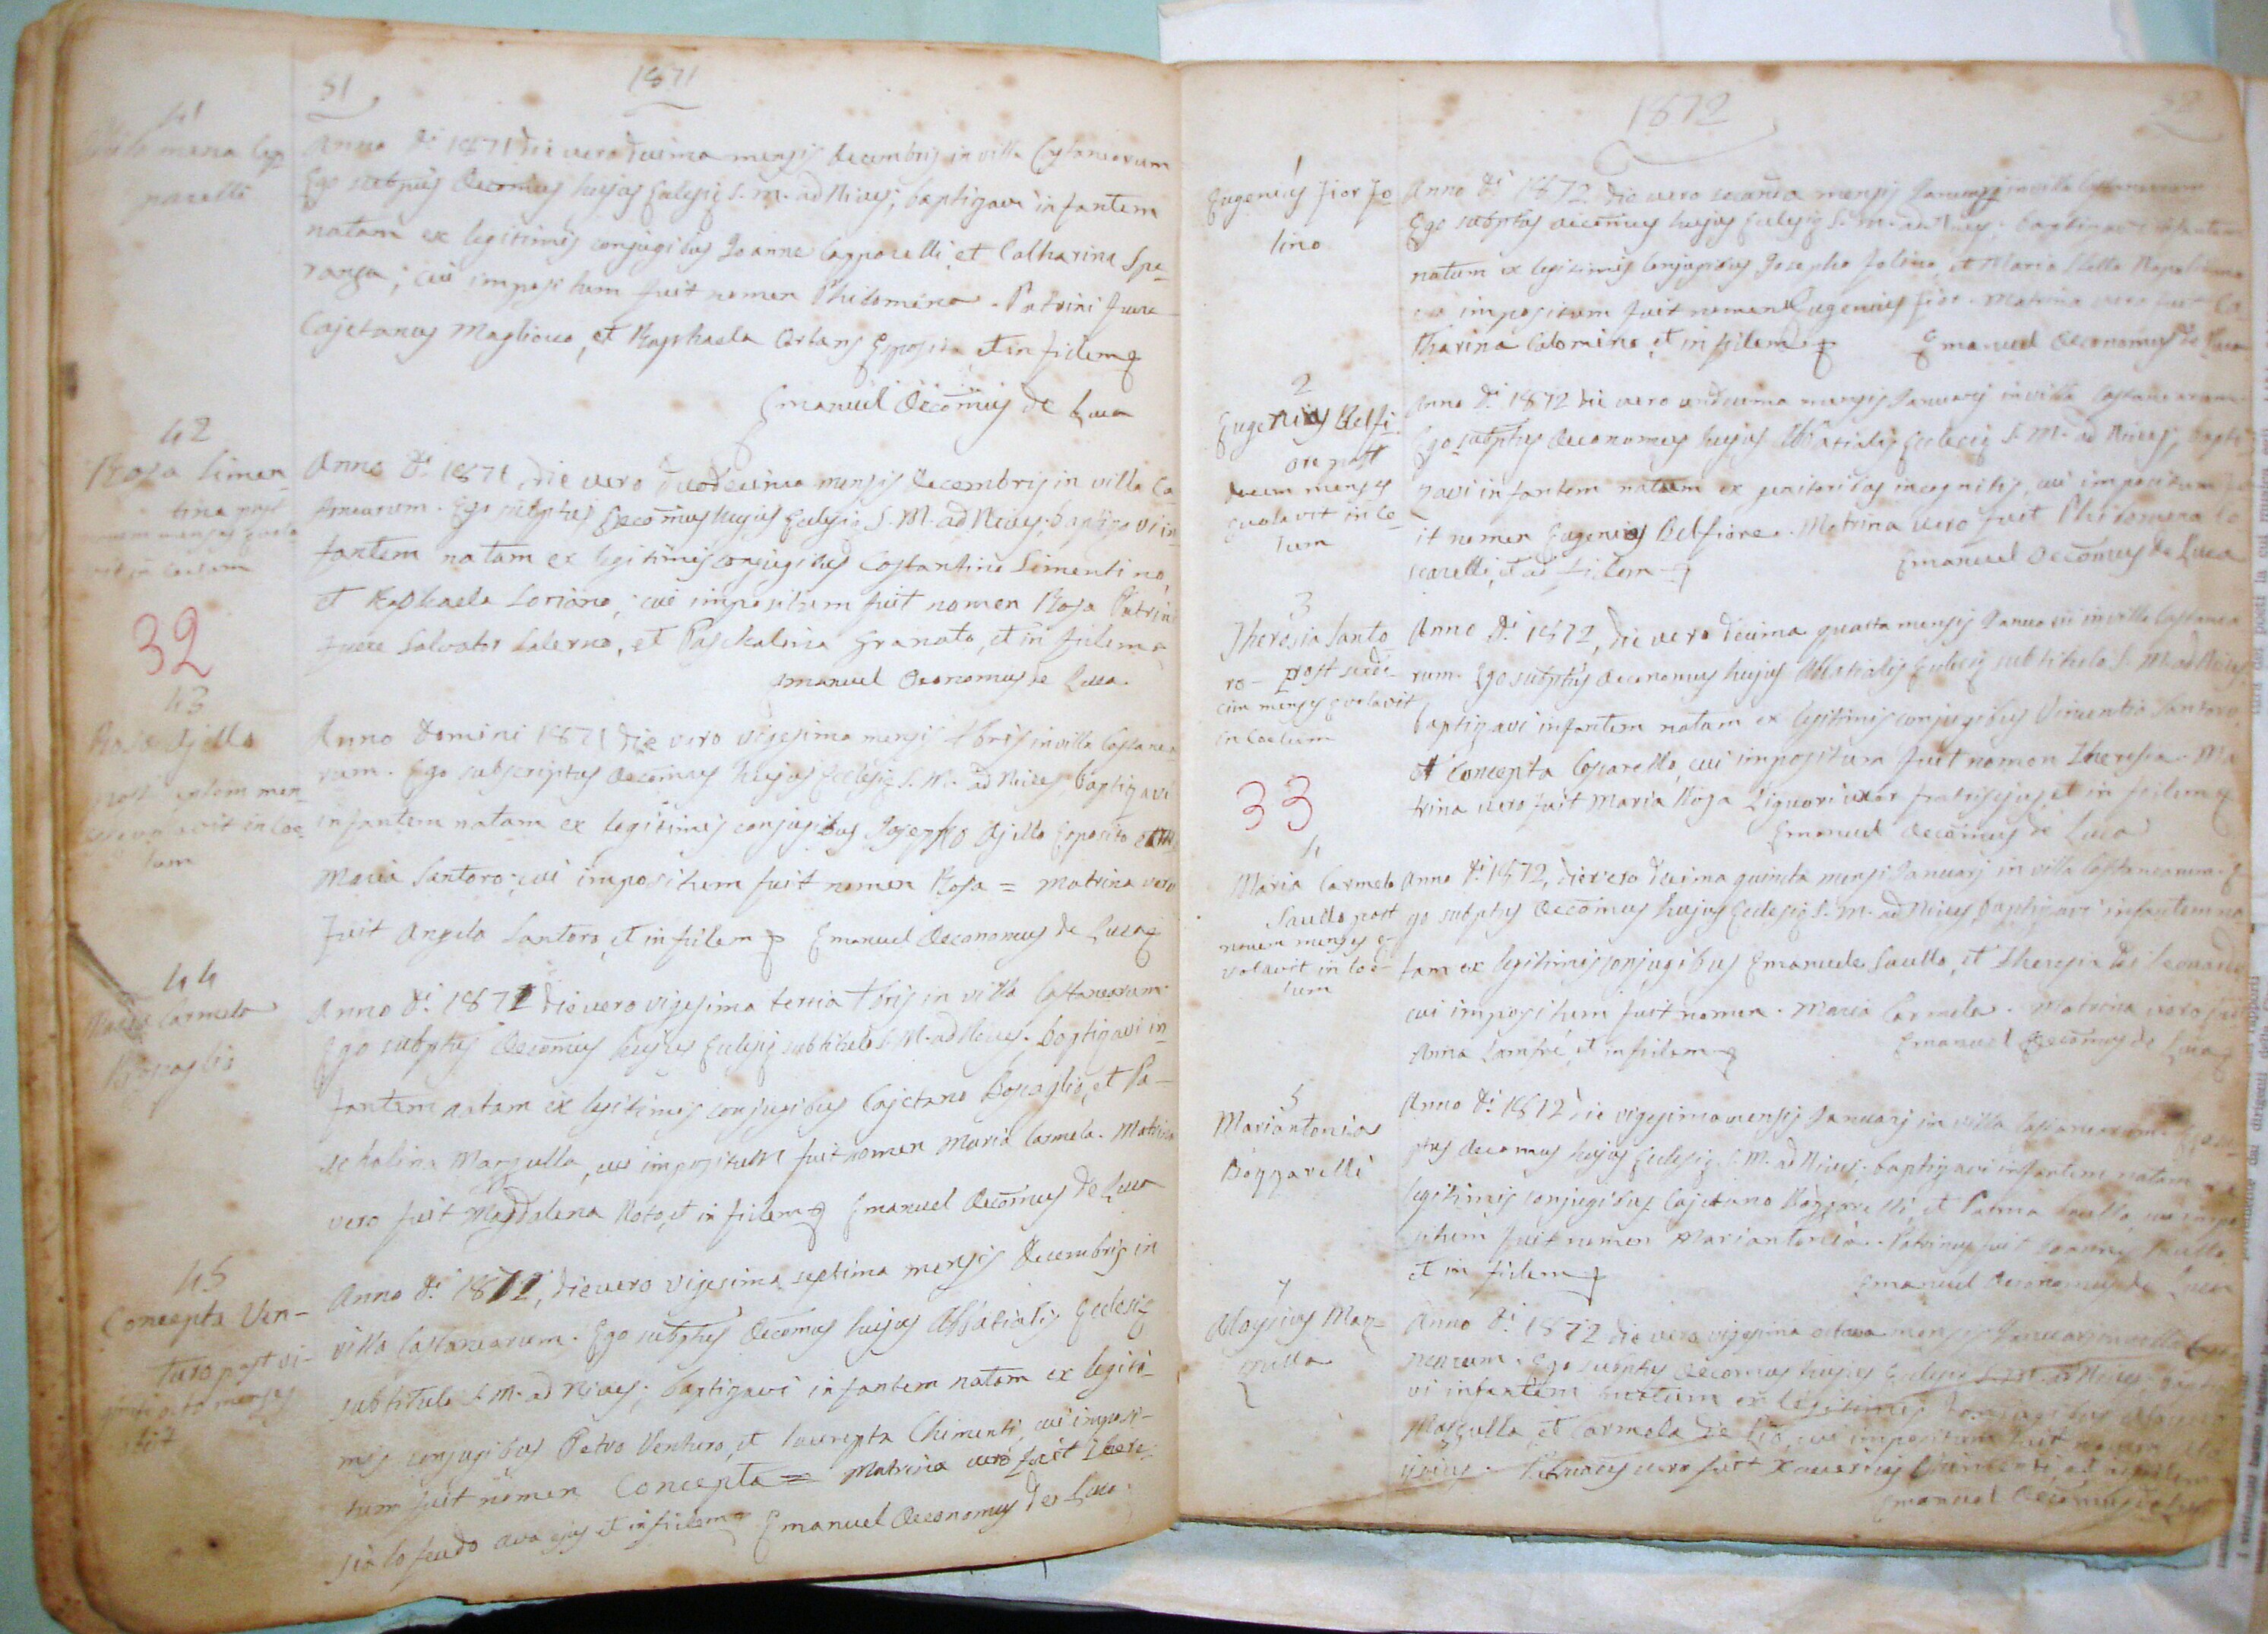 51
1871
41
mena Cap
parelli
Anno Di 1871 die vero decima mensis decembris in villa Castanearum
Ego subptus Oecomus hujus Eclesie S. M. ad Nives; baptizavi infantem
natam ex legitimis conjugibus Joanne Capparelli, et Catharina Spe-
ranza; cui impositum fuit nomen Philomena. Patrini fuere
Cajetanus Magliocco, et Raphaela Esposito, et in fidem
Emanuel Oecomus de Luca
42
Rosa Simen
tino post
menses evola
vit in coelum
Anno Di 1871, die vero duodecima mensis decembris in villa Ca
stanearum. Ego subptus Oecomus hujus Eclesie S. M. ad Nives; baptizavi in-
fantem natam ex legitimis conjugibus Costantino Simentino,
et Raphaela Loriano; cui impositum fuit nomen Rosa Patrini
fuere Salvator Salerno, et Paschalina Granata, et in fidem
Emanuel Oeconomus de Luca.
32
43
Rosa Ajello
post men
ses evolavit in coe
lum
Anno Domini 1871 die vero vigesima mensis Xbris in villa Castanea
rum. Ego subscriptus Oecomus hujus Ecclesie S. M. ad Nives baptizavi
infantem natam ex legitimis conjugibus Josepho Ajello Esposito et
Maria Santoro; cui impositum fuit nomen Rosa = Matrina vero
fuit Angela Santoro, et in fidem Emanuel Oeconomus de Luca
44
Maria Carmela
Bossaglio
Anno Di 1871 die vero vigesima tertia Xbris in villa Castanearum
Ego subptus Oecomus hujus Eclesie sub titulo S. M. ad Nives. baptizavi in-
fantem natam ex legitimis conjugibus Cajetano Bossaglio, et Pa-
schalina Mazzulla, cui impositum fuit nomen Maria Carmela. Matrina
vero fuit Magdalena Roto, et in fidem Emanuel Oecomus de Luca
45
Concepta Ven-
turo post vi-
ginti octo menses
obiit
Anno Di 1871, die vero vigesima septima mensis Decembris in
villa Castanearum. Ego subptus Oecomus hujus Abbatialis Eclesie
sub titulo S. M. ad Nives; baptizavi infantem natam ex legiti-
mis conjugibus Petro Venturo, et Chimenti, cui imposi-
tum fuit nomen Concepta = Matrina vero fuit There-
sia lo feudo ava ejus et in fidem Emanuel Oeconomus de Luca.
1872
52
1
Eugenius Fior Jo
lino
Anno Di 1872 die vero secunda mensis Januarii in villa Castanearum
Ego subptus oecomus hujus Eclesie S. M. ad Nives. baptizavi infantem
natum ex legitimis conjugibus Josepho Jolino, et Maria Stella Napolitano
cui impositum fuit nomen Eugenius Fior. Matrina vero fuit Ca
tharina Calomino, et in fidem Emanuel Oeconomus de Luca
2
Eugenius Belfi
ore post
decem menses
evolavit in Ce-
lum
Anno Di 1872 die vero undecima mensis Januarij in villa Castanearum
Ego subptus Oeconomus hujus Abbatialis Eclesie S. M. ad Nives; bapti
zavi infantem natum ex genitoribus incognitis, cui impositum fu
it nomen Eugenius Belfiore. Matrina vero fuit Philomena Co
scarelli, et ad fidem Emanuel Oecomus de Luca
3
Theresia Santo
ro - post sede-
cim menses evolavit
in coelum
Anno Di 1872, die vero decima quarta mensis Januarii in villa Castanea
rum. Ego subptus Oeconomus hujus Abbatialis Eclesie sub titulo S. M. ad Nives
baptizavi infantem natam ex legitimis conjugibus Vincentio Santoro,
et Concepta Coscarella, cui impositum fuit nomen Theresia. Ma
trina vero fuit Maria Rosa Liguori uxor fratris ejus, et in fidem
Emanuel Oecomus de Luca
33
4
Maria Carmela
Saullo post
novem menses e-
volavit in coe-
lum
Anno Di 1872, die vero decima quinta mensis Januarj in villa Castanearum. E
go subptus Oecomus hujus Eclesie S. M. ad Nives, baptizavi infantem na
tam ex legitimis conjugibus Emanuele Saullo, et Theresia de Leonardo
cui impositum fuit nomen. Maria Carmela. Matrina vero fuit
Anna Lanfré, et in fidem Emanuel Oecomus de Luca
5
Mariantonia
Bozzarelli
Anno Di 1872 die vigesima mensis Januarj in villa Castanearum. Ego su-
ptus Oecomus hujus Eclesie S. M. ad Nives; baptizavi infantem natam ex
legitimis conjugibus Cajetano Bozzarelli, et Palma cui impo
situm fuit nomen Mariantonia. Patrinus fuit Joannes
et in fidem Emanuel Oeconomus de Luca
7
Aloysius Maz-
zulla
Anno Di 1872 die vero vigesima octava mensis Januarj in villa Casta
nearum. Ego subptus Oecomus hujus Eclesie S. M. ad Nives baptiza
vi infantem natum ex legitimis conjugibus
Mazzulla, et Carmela de Lio, cui impositum fuit nomen Alo
ysius. Patrinus vero fuit Xaverius Chimenti, et in fidem
Emanuel Oecomus de Luca